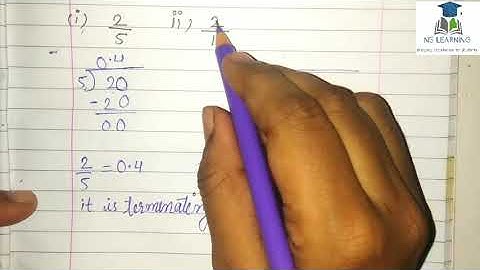 (i) 2/5 ii) 2/1
0.4
5) 20
- 20
00
2/5 = 0.4
it is terminating
NG LEARNING